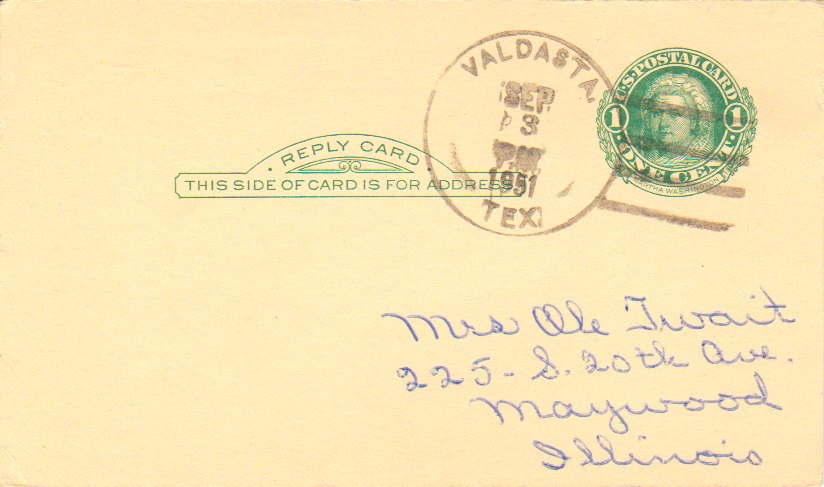 VALDASTA.
SEP
3
1951
TEX
U.S. POSTAL CARD
1 1
ONE CENT
MARTHA WASHINGTON
REPLY CARD
THIS SIDE OF CARD IS FOR ADDRESS
Mrs Ole Twait
225 - S. 20th Ave.
Maywood
Illinois